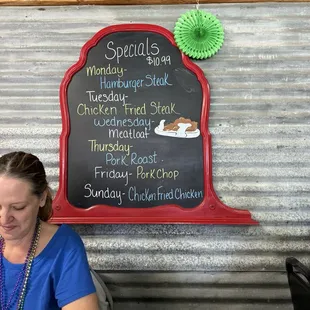 Specials
$10.99
Monday-
Hamburger Steak
Tuesday-
Chicken Fried Steak
Wednesday-
Meatloaf
Thursday-
Pork Roast
Friday- Pork Chop
Sunday- Chicken Fried Chicken